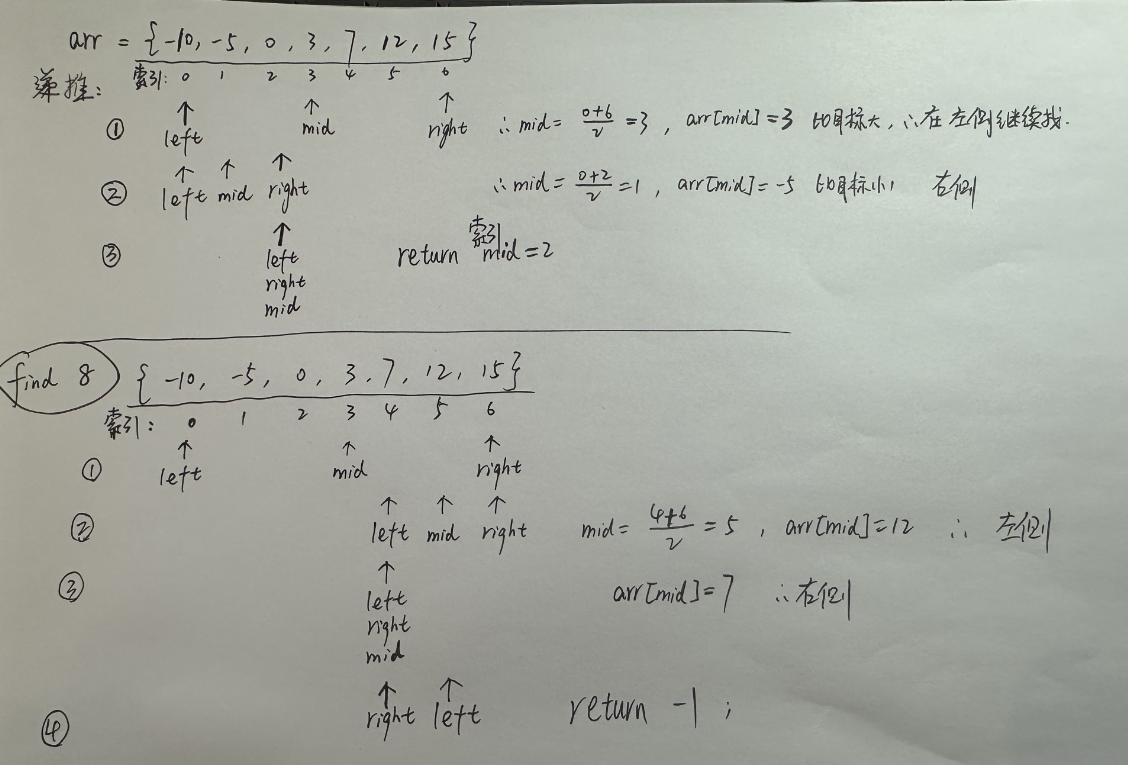 arr = {-10, -5, 0, 3, 7, 12, 15}
索引: 0 1 2 3 4 5 6
推:
① left mid right ∴ mid = 0+6/2 = 3, arr[mid] = 3 比目标大, ∴ 在左侧继续找.
② left mid right ∴ mid = 0+2/2 = 1, arr[mid] = -5 比目标小, 右侧
③ left return 索引 mid = 2
right
mid
find 8 {-10, -5, 0, 3, 7, 12, 15}
索引: 0 1 2 3 4 5 6
① left mid right
② left mid right mid = 4+6/2 = 5, arr[mid] = 12 ∴ 左侧
③ left arr[mid] = 7 ∴ 右侧
right
mid
④ right left return -1;